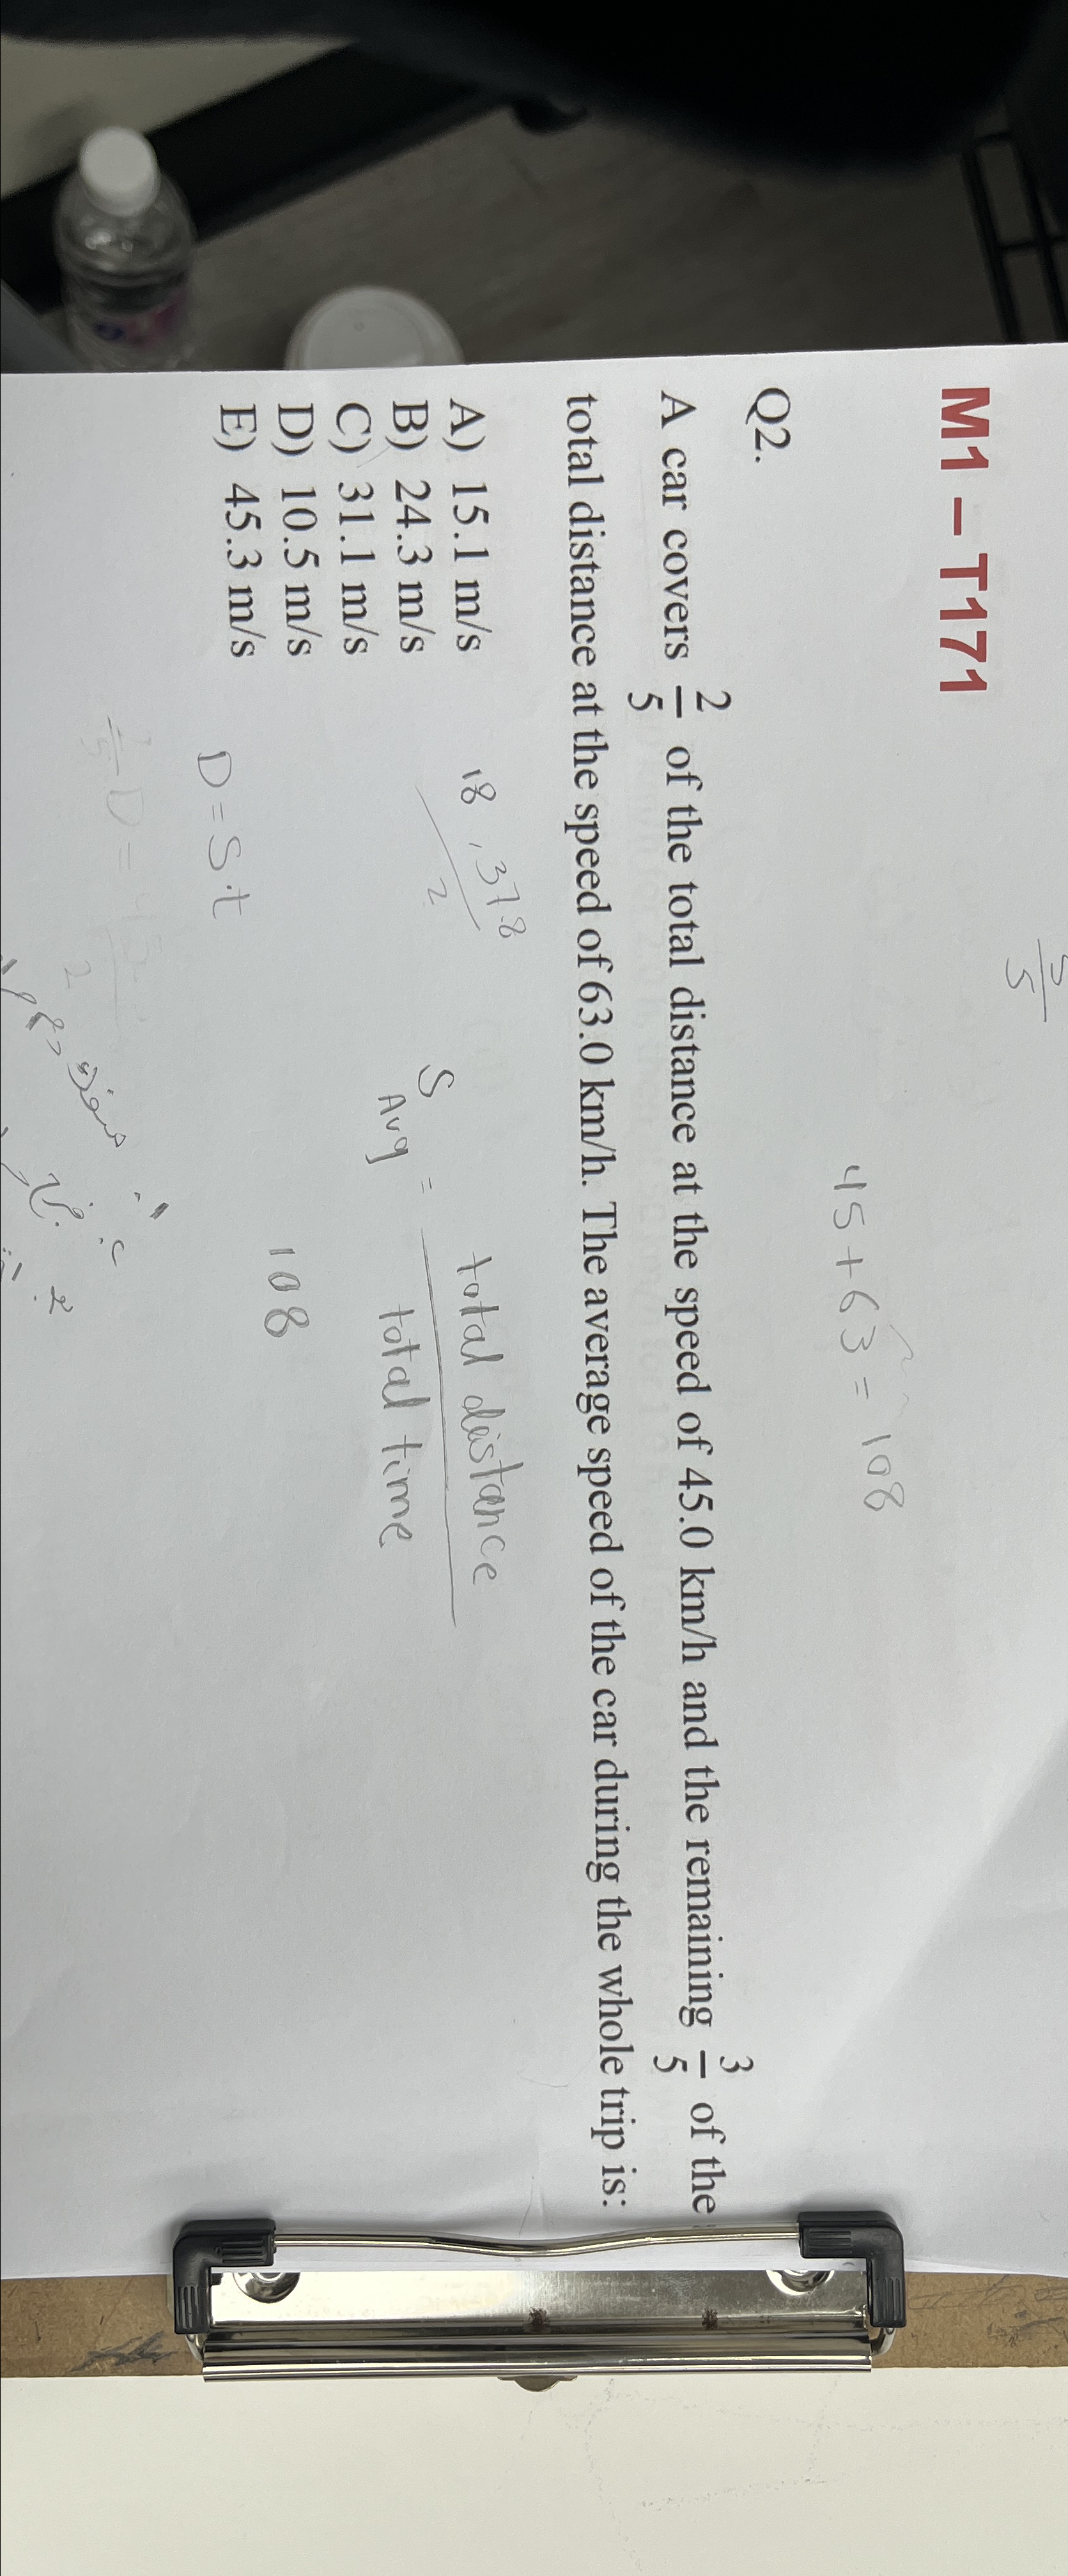 5
5
45 + 63 = 108
M1 – T171
Q2.
A car covers 2/5 of the total distance at the speed of 45.0 km/h and the remaining 3/5 of the
total distance at the speed of 63.0 km/h. The average speed of the car during the whole trip is:
A) 15.1 m/s
B) 24.3 m/s
C) 31.1 m/s
D) 10.5 m/s
E) 45.3 m/s
18 , 37.8
2
S Avg = total distance
total time
108
D = S.t
D =
2